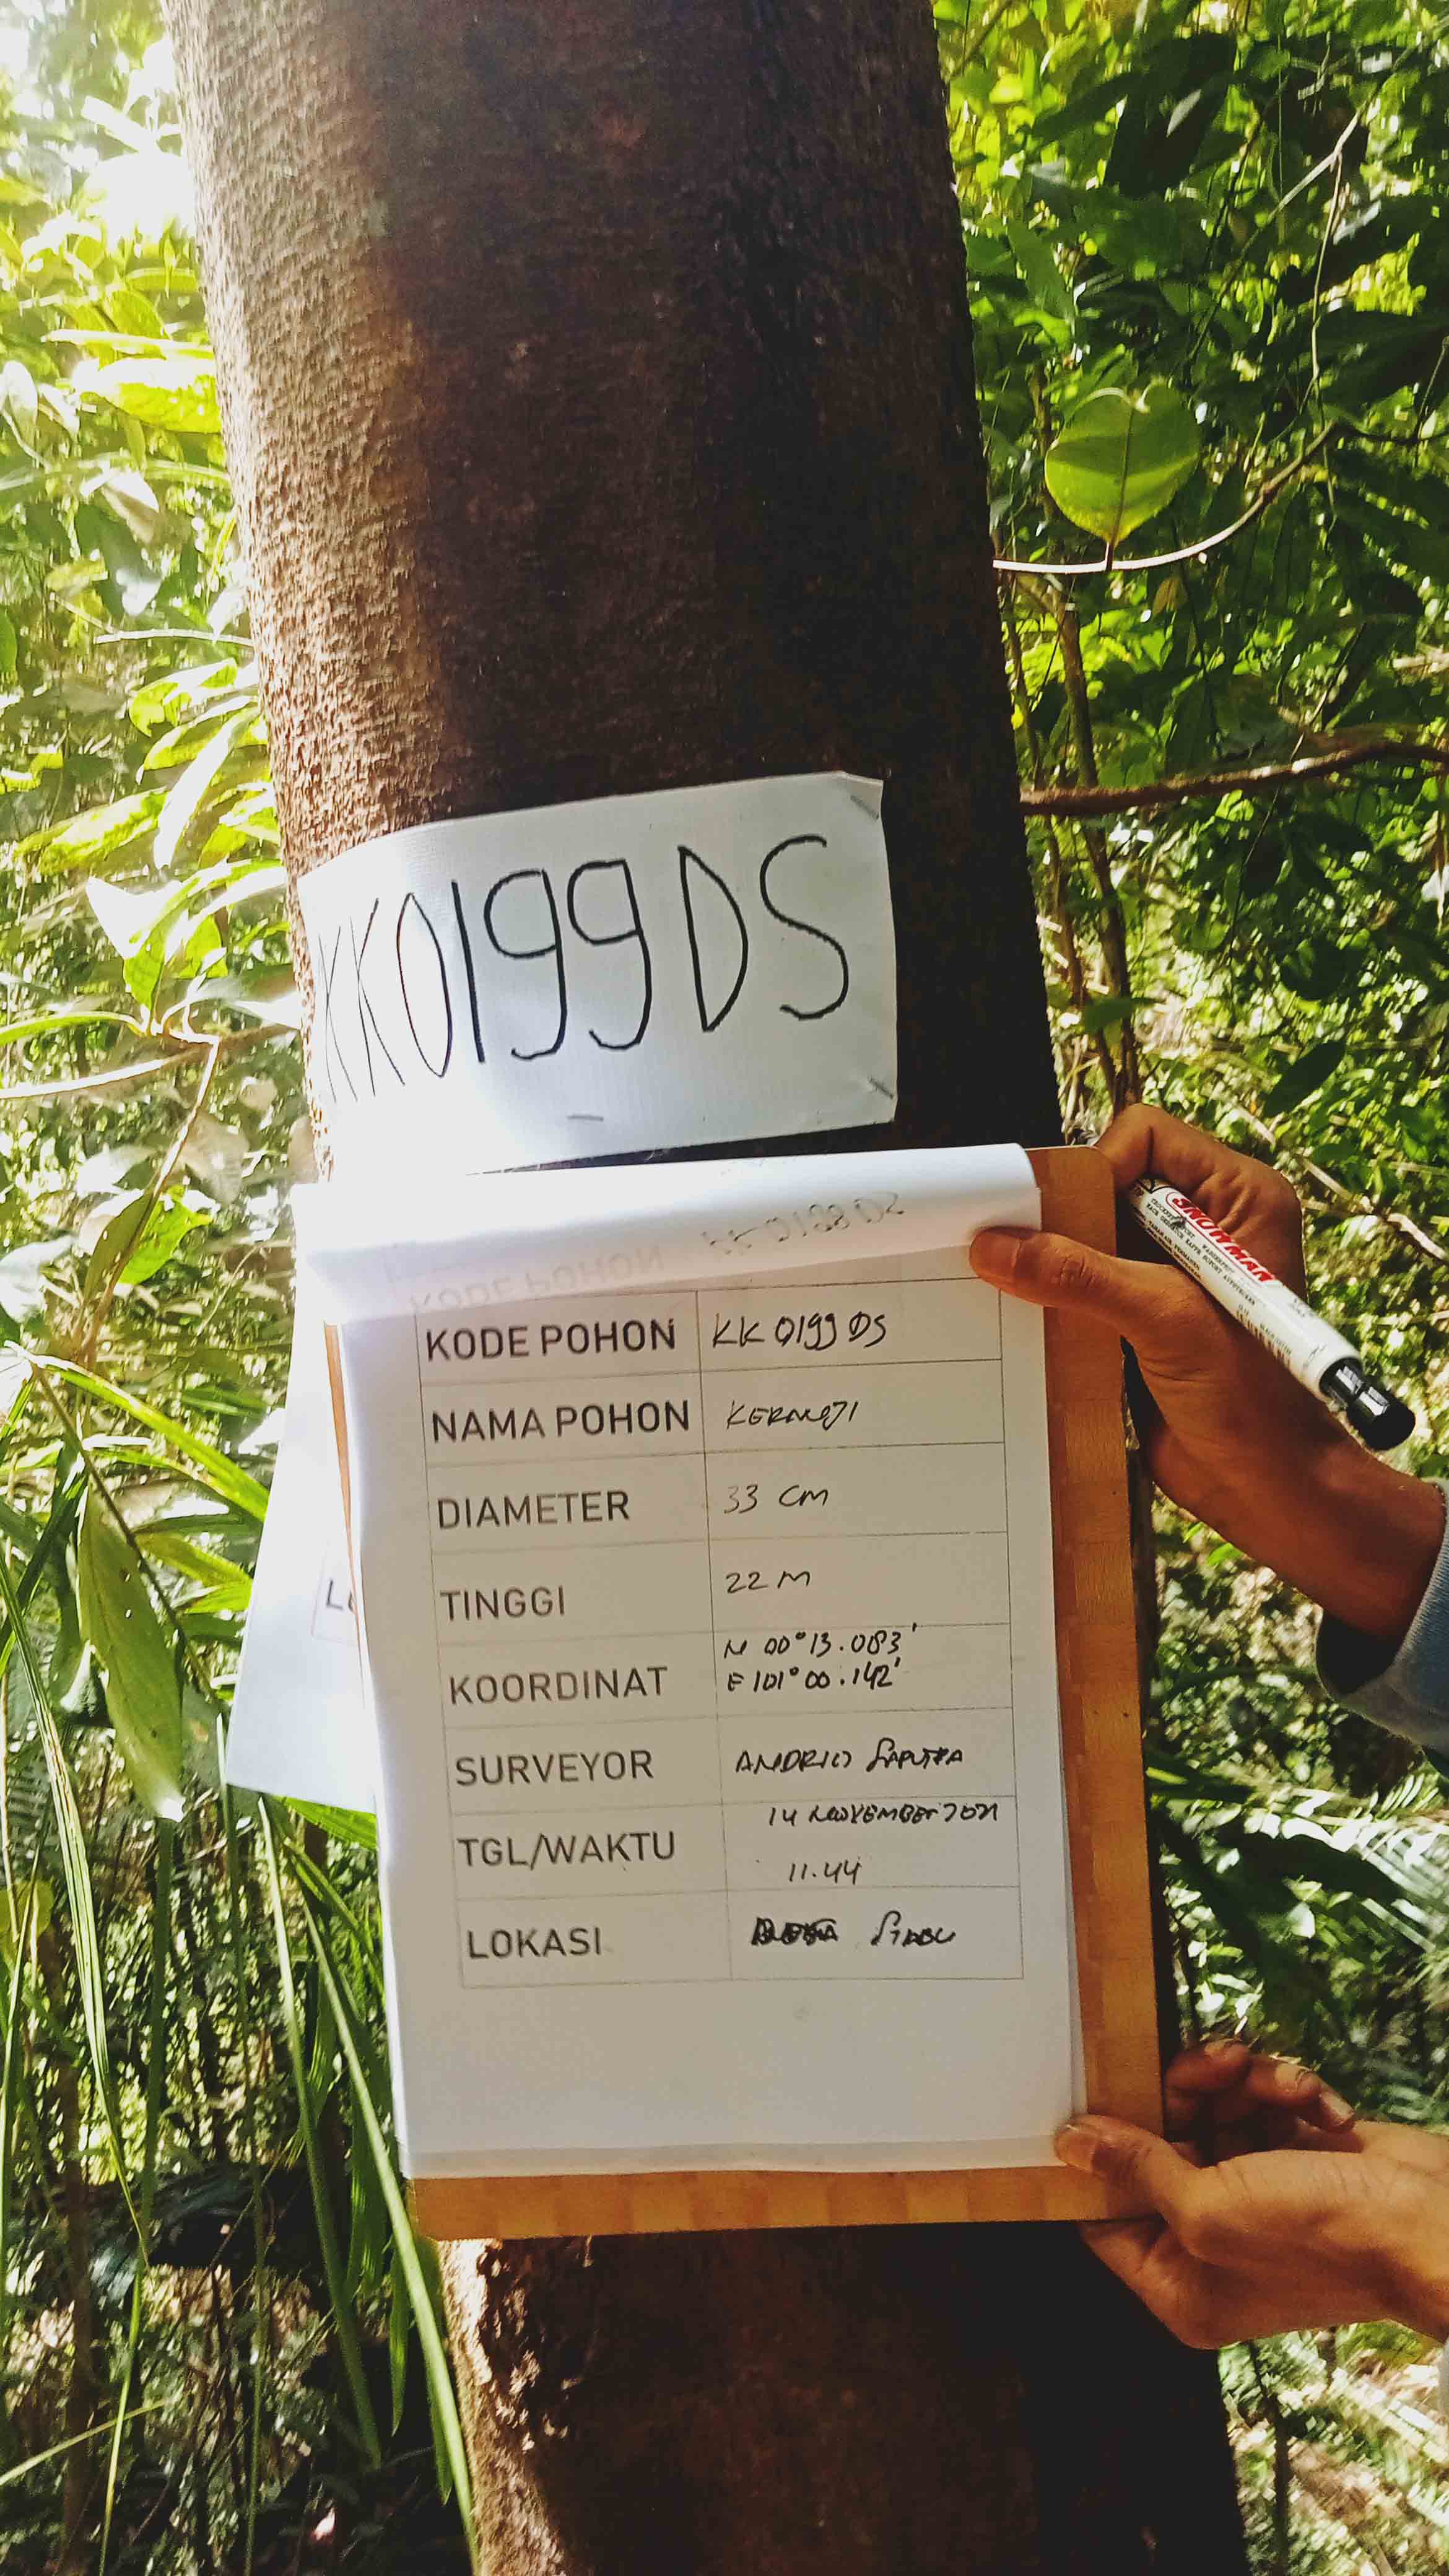 KK0199DS
KODE POHON KK 0198 DS
KODE POHON KK 0199 DS
NAMA POHON
DIAMETER 33 CM
TINGGI 22 M
KOORDINAT N 00° 13.083'
E 101° 00.142'
SURVEYOR SAPUTRA
TGL/WAKTU 14 NOVEMBER 2021
11.44
LOKASI
SNOWMAN